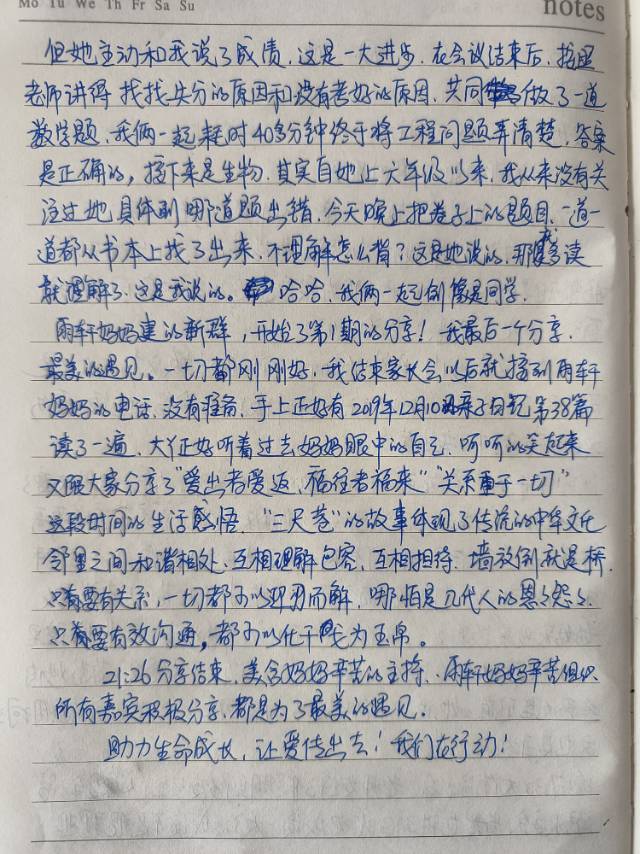 Mo Tu We Th Fr Sa Su
notes
但她主动和我说了成绩,这是一大进步。在会议结束后,按照
老师讲得找找失分的原因和没有考好的原因,共同做了一道
数学题,我俩一起耗时40多分钟终于将工程问题弄清楚,答案
是正确的,接下来是生物,其实自她上六年级以来,我从来没有关
注过她具体到哪道题出错,今天晚上把卷子上的题目,一道一
道都从书本上找了出来,不理解怎么背?这是她说的,那就多读
就理解了,这是我说的。哈哈,我俩一起倒像是同学。
雨轩妈妈建的新群,开始了第1期的分享!我最后一个分享,
最美的遇见。一切都刚刚好,我结束家长会以后就接到雨轩
妈妈的电话,没有准备,手上正好有2019年12月10日亲子日记第38篇
读了一遍,大丫正好听着过去妈妈眼中的自己,呵呵的笑起来
又跟大家分享了"爱出者爱返,福往者福来""关系重于一切"
这段时间的生活感悟,"三尺巷"的故事体现了传统的中华文化
邻里之间和谐相处,互相理解包容,互相担待,墙放倒就是桥,
只要有关系,一切都可以迎刃而解,哪怕是几代人的恩恩怨怨,
只要有效沟通,都可以化干戈为玉帛。
21:26分享结束,美含妈妈辛苦的主持,雨轩妈妈辛苦组织
所有嘉宾积极分享,都是为了最美的遇见。
助力生命成长,让爱传出去!我们在行动!